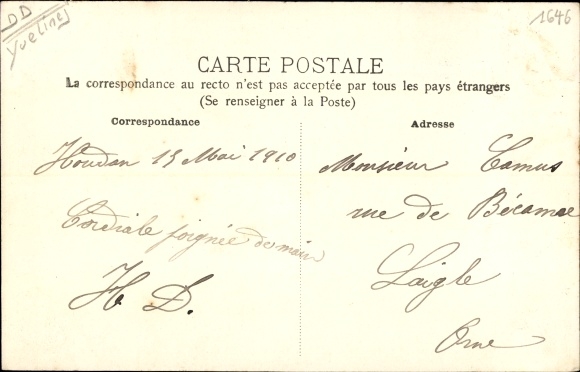 DD
Yvelines
1646
CARTE POSTALE
La correspondance au recto n'est pas acceptée par tous les pays étrangers
(Se renseigner à la Poste)
Correspondance
Adresse
Houdan 13 Mai 1910
Cordiale poignée de main
H D.
Monsieur Camus
rue de Bécamae
Laigle
Orne